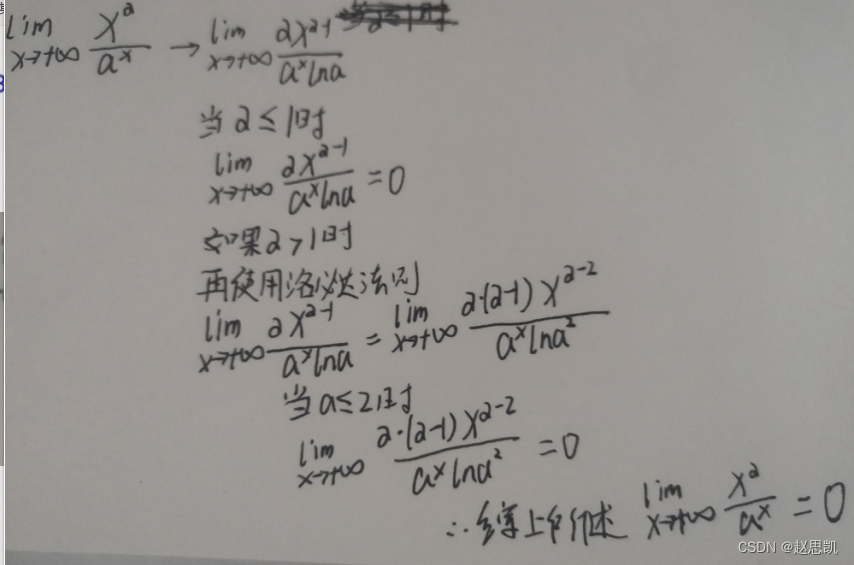 lim x→+∞ x^2/a^x → lim x→+∞ 2x^(2-1)/(a^x lna)
当2≤1时
lim x→+∞ 2x^(2-1)/(a^x lna) = 0
如果2>1时
再使用洛必达法则
lim x→+∞ 2x^(2-1)/(a^x lna) = lim x→+∞ 2·(2-1)x^(2-2)/(a^x lna^2)
当a≤2时
lim x→+∞ 2·(2-1)x^(2-2)/(a^x lna^2) = 0
∴综上所述 lim x→+∞ x^2/a^x = 0
CSDN @赵思凯